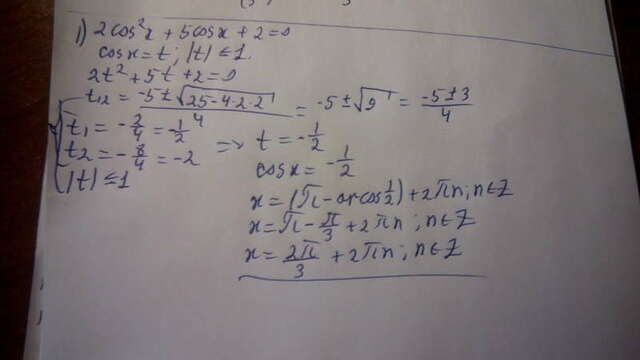 1) 2cos²x + 5cosx + 2 = 0
cosx = t ; |t| ≤ 1
2t² + 5t + 2 = 0
t₁,₂ = -5 ± √25-4·2·2 / 4 = -5 ± √9 = -5 ± 3 / 4
t₁ = -2/4 = -1/2
t₂ = -8/4 = -2
|t| ≤ 1
=> t = -1/2
cosx = -1/2
x = (π - arcos 1/2) + 2πn ; n∈Z
x = π - π/3 + 2πn ; n∈Z
x = 2π/3 + 2πn ; n∈Z